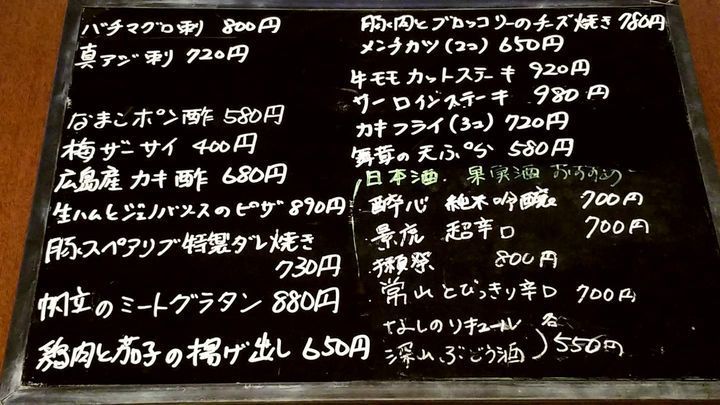 バチマグロ刺 800円
真アジ刺 720円
なまこポン酢 580円
梅ザーサイ 400円
広島産カキ酢 680円
生ハムとジェノバソースのピザ 890円
豚スペアリブ特製ダレ焼き
730円
帆立のミートグラタン 880円
鶏肉と茄子の揚げ出し 650円
豚肉とブロッコリーのチーズ焼き 780円
メンチカツ(2コ) 650円
牛モモカットステーキ 920円
サーロインステーキ 980円
カキフライ(3コ) 720円
舞茸の天ぷら 580円
日本酒.果実酒 おすすめ
酔心 純米吟醸 700円
景虎 超辛口 700円
獺祭 800円
常山 とびっきり辛口 700円
なしのリキュール 各
深山ぶどう酒 550円